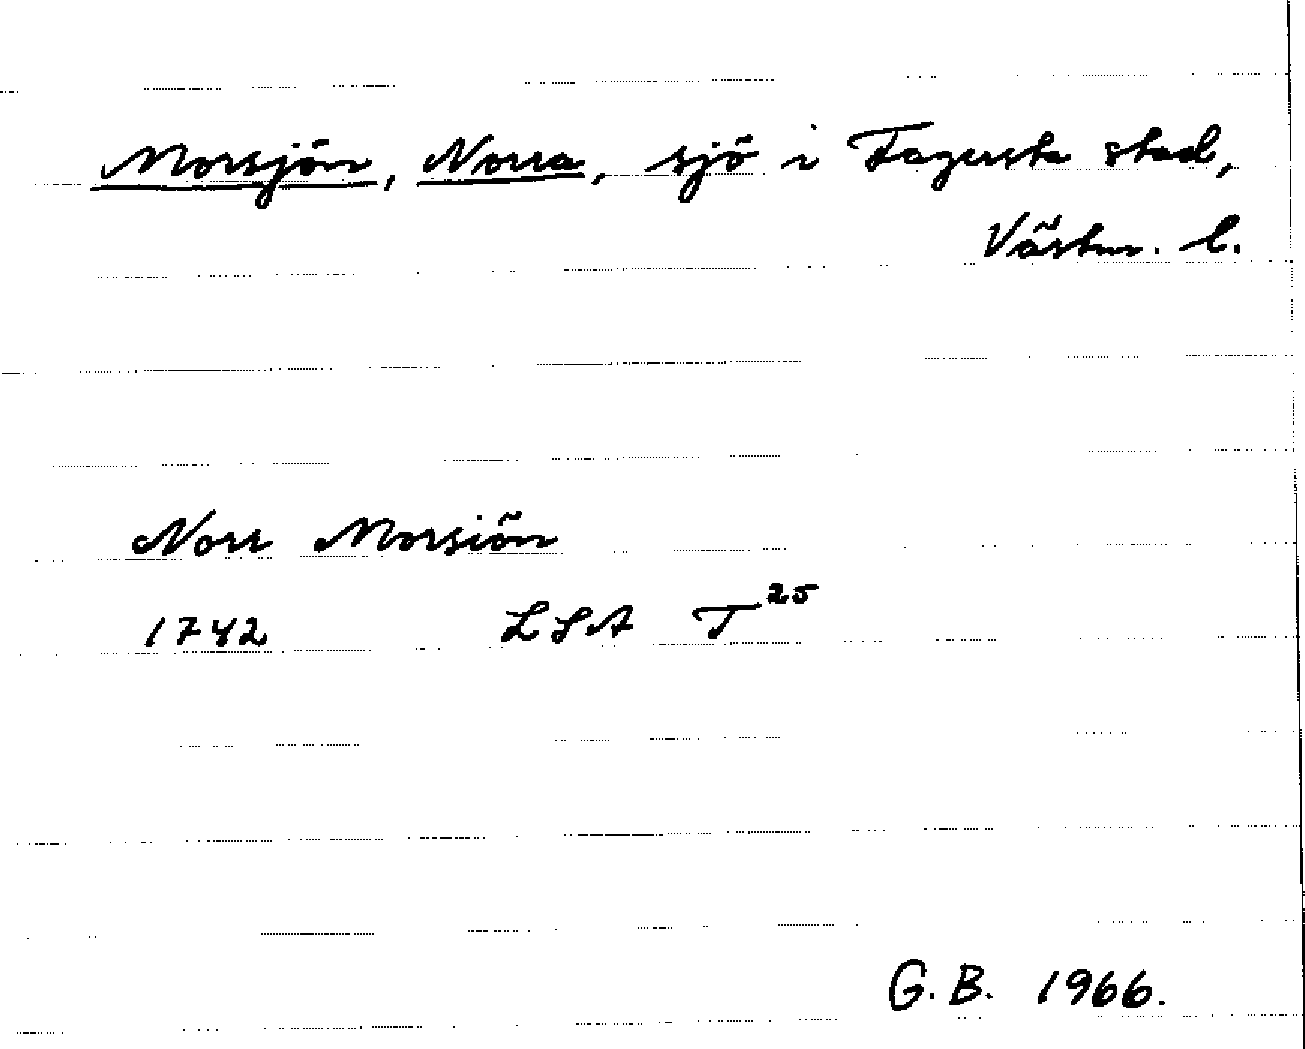 Morsjön, Norra, sjö i Fagersta stad,
Västm. l.
Norr Morsiön
1742 LSA T25
G.B. 1966.